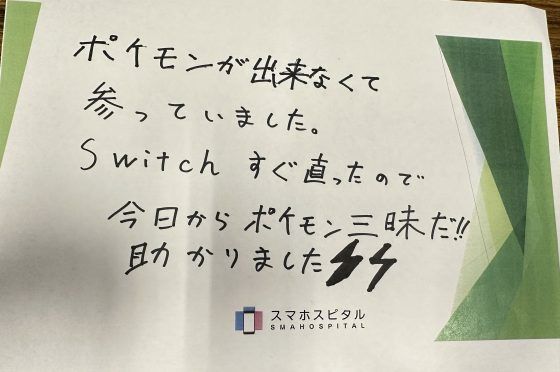 ポケモンが出来なくて
参っていました。
Switch すぐ直ったので
今日から ポケモン三昧だ!!
助かりました
スマホスピタル
SMAHOSPITAL